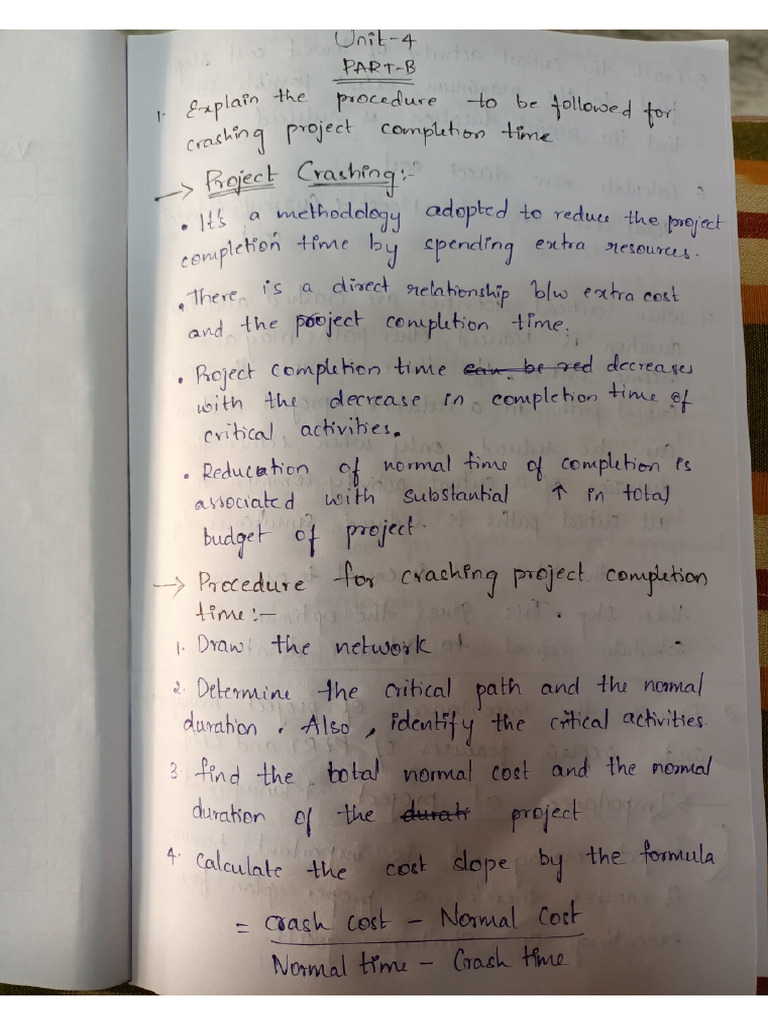 Unit-4
PART-B
1. Explain the procedure to be followed for
crashing project completion time
→ Project Crashing:-
• It's a methodology adopted to reduce the project
completion time by spending extra resources.
• There is a direct relationship b/w extra cost
and the project completion time.
• Project completion time can be red decreases
with the decrease in completion time of
critical activities.
• Reducation of normal time of completion is
associated with substantial ↑ in total
budget of project.
→ Procedure for crashing project completion
time:-
1. Draw the network
2. Determine the critical path and the normal
duration. Also, identify the critical activities.
3. find the total normal cost and the normal
duration of the durati project
4. calculate the cost slope by the formula
= Crash cost - Normal Cost
Normal time - Crash time